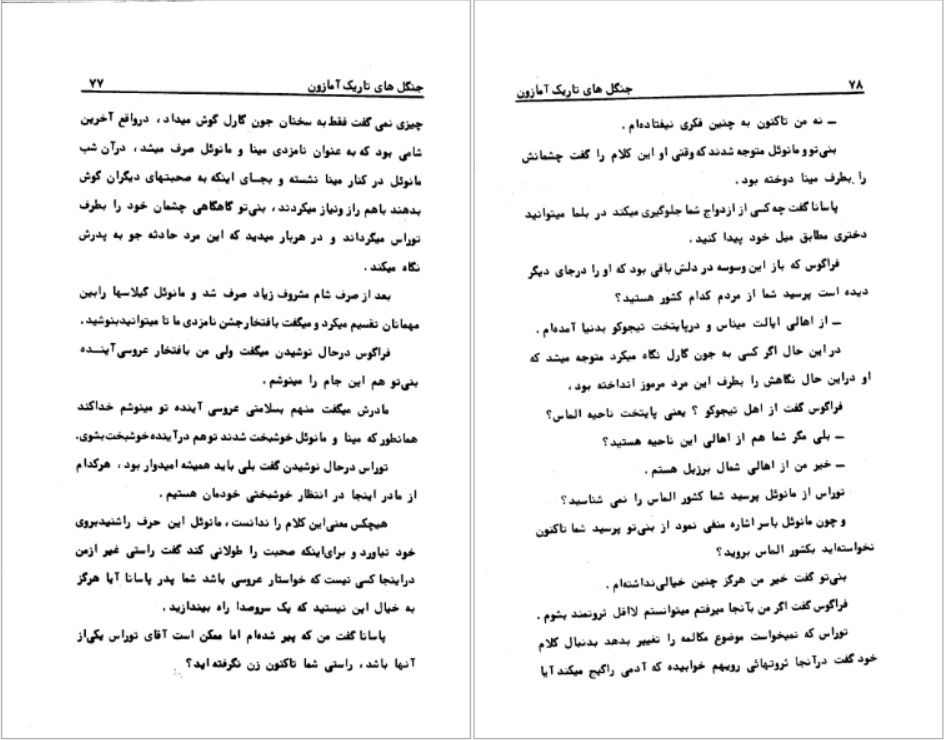 جنگل های تاریک آمازون ۷۷
چیزی نمی گفت فقط به سخنان جون گارل گوش میداد ، درواقع آخرین
شامی بود که به عنوان نامزدی مینا و مانوئل صرف میشد ، درآن شب
مانوئل در کنار مینا نشسته و بجای اینکه به صحبتهای دیگران گوش
بدهند باهم راز ونیاز میکردند ، بنی‌تو گاهگاهی چشمان خود را بطرف
توراس میگرداند و در هربار میدید که این مرد حادثه جو به پدرش
نگاه میکند .
بعد از صرف شام مشروف زیاد صرف شد و مانوئل گیلاسها رابین
مهمانان تقسیم میکرد و میگفت بافتخارجشن نامزدی ما تا میتوانیدبنوشید.
فراگوس درحال نوشیدن میگفت ولی من بافتخار عروسی آینده
بنی‌تو هم این جام را مینوشم .
مادرش میگفت منهم بسلامتی عروسی آینده تو مینوشم خداکند
همانطور که مینا و مانوئل خوشبخت شدند توهم درآینده خوشبخت بشوی.
توراس درحال نوشیدن گفت بلی باید همیشه امیدوار بود ، هرکدام
از مادر اینجا در انتظار خوشبختی خودمان هستیم .
هیچکس معنی‌این کلام را ندانست ، مانوئل این حرف راشنیدبروی
خود نیاورد و برای‌اینکه صحبت را طولانی کند گفت راستی غیر ازمن
دراینجا کسی نیست که خواستار عروسی باشد شما پدر پاسانا آیا هرگز
به خیال این نیستید که یک سروصدا راه بیندازید .
پاسانا گفت من که پیر شده‌ام اما ممکن است آقای توراس یکی‌از
آنها باشد ، راستی شما تاکنون زن نگرفته اید؟
جنگل های تاریک آمازون ۷۸
ــ نه من تاکنون به چنین فکری نیفتاده‌ام .
بنی‌تو و مانوئل متوجه شدند که وقتی او این کلام را گفت چشمانش
را بطرف مینا دوخته بود .
پاسانا گفت چه کسی از ازدواج شما جلوگیری میکند در بلما میتوانید
دختری مطابق میل خود پیدا کنید .
فراگوس که باز این وسوسه در دلش باقی بود که او را درجای دیگر
دیده است پرسید شما از مردم کدام کشور هستید؟
ــ از اهالی ایالت میناس و درپایتخت تیجوکو بدنیا آمده‌ام .
در این حال اگر کسی به جون گارل نگاه میکرد متوجه میشد که
او دراین حال نگاهش را بطرف این مرد مرموز انداخته بود ،
فراگوس گفت از اهل تیجوکو ؟ یعنی پایتخت ناحیه الماس؟
ــ بلی مگر شما هم از اهالی این ناحیه هستید؟
ــ خیر من از اهالی شمال برزیل هستم .
توراس از مانوئل پرسید شما کشور الماس را نمی شناسید؟
و چون مانوئل باسر اشاره منفی نمود از بنی‌تو پرسید شما تاکنون
نخواسته‌اید بکشور الماس بروید؟
بنی‌تو گفت خیر من هرگز چنین خیالی‌نداشته‌ام .
فراگوس گفت اگر من بآنجا میرفتم میتوانستم لااقل ثروتمند بشوم .
توراس که نمیخواست موضوع مکالمه را تغییر بدهد بدنبال کلام
خود گفت درآنجا ثروتهائی رویهم خوابیده که آدمی راگیج میکند آیا